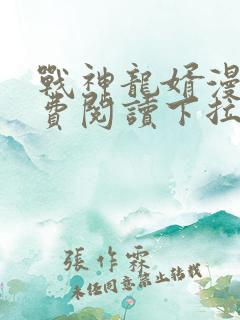 戰神龍婿漫
費閱讀下拉
張作霖
未任同意禁止轉載